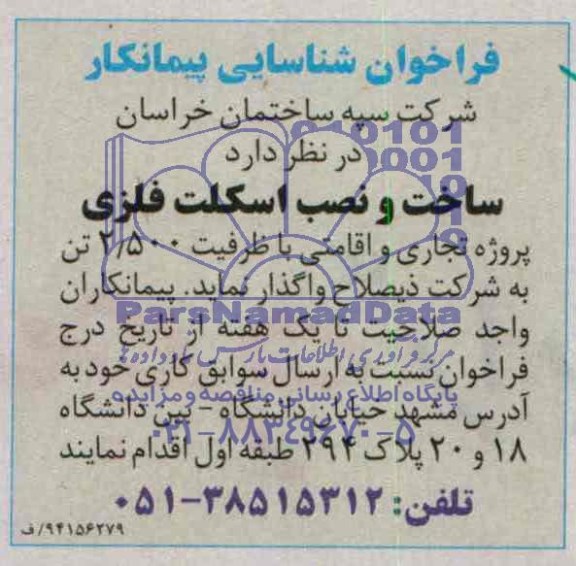 فراخوان شناسایی پیمانکار
شرکت سپه ساختمان خراسان
در نظر دارد
ساخت و نصب اسکلت فلزی
پروژه تجاری و اقامتی با ظرفیت ۲/۵۰۰ تن
به شرکت ذیصلاح واگذار نماید. پیمانکاران
واجد صلاحیت تا یک هفته از تاریخ درج
فراخوان نسبت به ارسال سوابق کاری خود به
آدرس مشهد خیابان دانشگاه - بین دانشگاه
۱۸ و ۲۰ پلاک ۲۹۴ طبقه اول اقدام نمایند
تلفن: ۳۸۵۱۵۳۱۲-۰۵۱
۹۴۱۵۶۲۷۹/ف
ParsNamadData
مرکز فرآوری اطلاعات پارس نماد داده ها
پایگاه اطلاع رسانی مناقصه و مزایده
۰۲۱-۸۸۳۴۹۶۷۰-۵